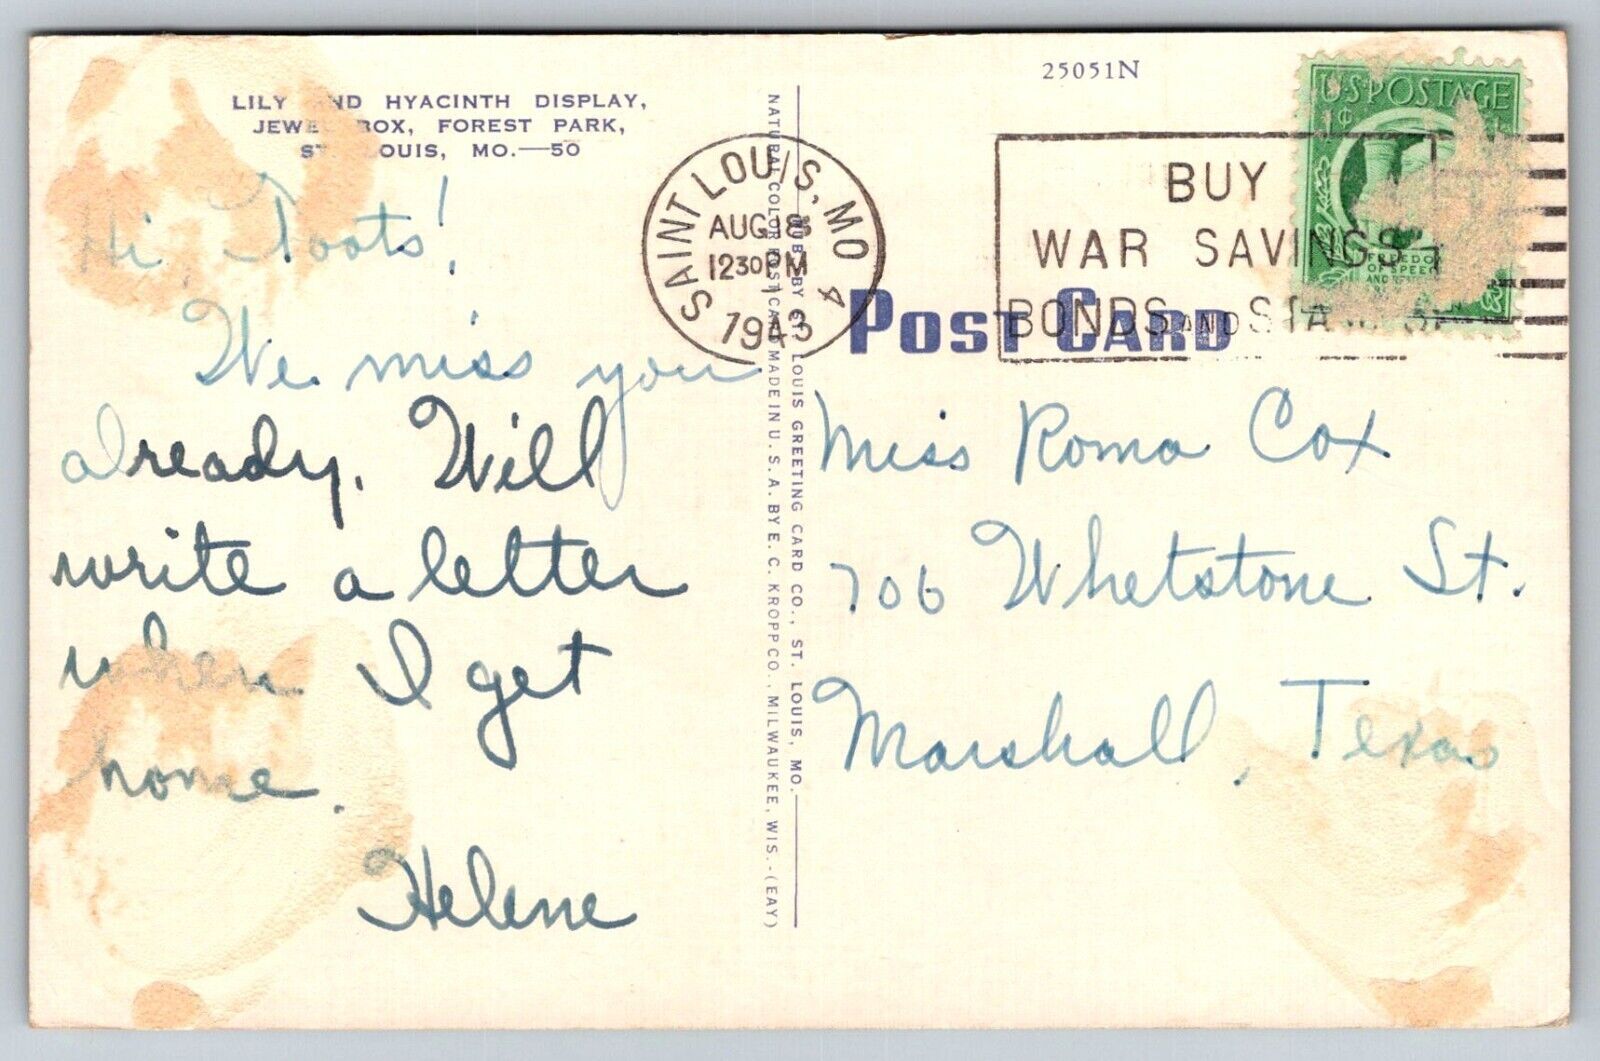 LILY AND HYACINTH DISPLAY,
JEWEL BOX, FOREST PARK,
ST. LOUIS, MO.—50
Hi, Toots!
We miss you
already. Will
write a letter
when I get
home.
Helene
NATURAL COLOR POST CARD MADE IN U. S. A. BY E. C. KROPP CO., MILWAUKEE, WIS.-(EAY)
PUB. BY ST. LOUIS GREETING CARD CO., ST. LOUIS, MO.
25051N
SAINT LOUIS, MO
AUG 18
12 30 PM
1943
4
BUY
WAR SAVINGS
BONDS AND STAMPS
U.S. POSTAGE
1¢
FREEDOM
OF SPEECH
POST CARD
Miss Roma Cox
706 Whetstone St.
Marshall, Texas